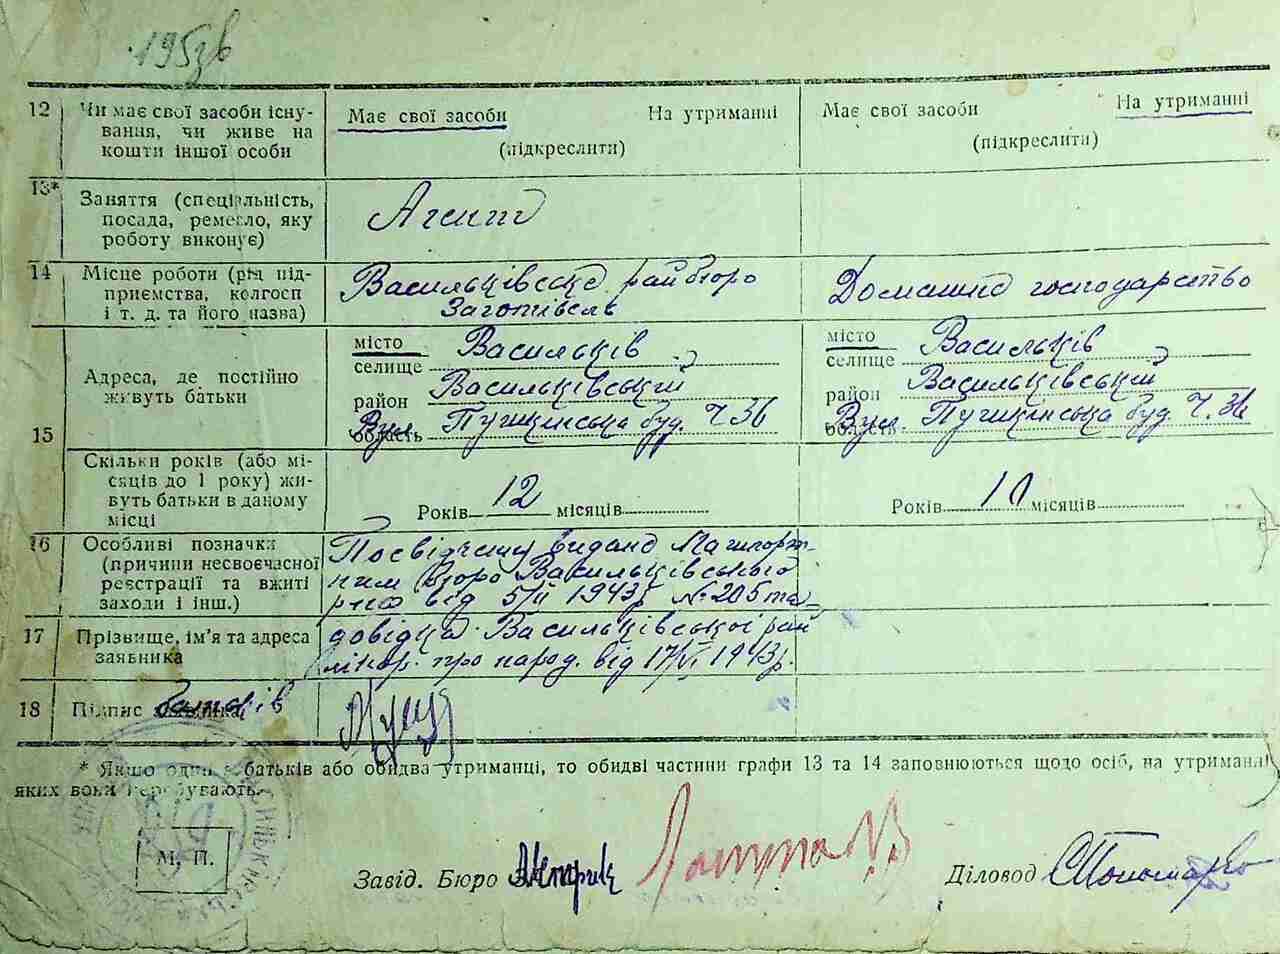 195зв
12 Чи має свої засоби існу- Має свої засоби На утриманні Має свої засоби На утриманні
вання, чи живе на
кошти іншої особи (підкреслити) (підкреслити)
13* Заняття (спеціальність, Агент
посада, ремесло, яку
роботу виконує)
14 Місце роботи (рід під- Васильківське райбюро Домашнє господарство
приємства, колгосп Заготівель
і т. д. та його назва)
15 Адреса, де постійно живуть батьки
місто Васильків місто Васильків
селище селище
район Васильківський район Васильківський
область Вул. Пушкінська буд. Ч 36 область Вул. Пушкінська буд. Ч. 36
Скільки років (або мі-
сяців до 1 року) жи-
вуть батьки в даному
місці Років 12 місяців Років 10 місяців
16 Особливі позначки Посвідчення видане
(причини несвоєчасної бюро Васильківського
реєстрації та вжиті від 5/ІІ 1943р № 205 та
заходи і інш.)
17 Прізвище, ім'я та адреса довідка Васильківської рай
заявника лікар. про народ. від 17/VI 1943р.
18 Підпис батьків
* Якщо один з батьків або обидва утриманці, то обидві частини графи 13 та 14 заповнюються щодо осіб, на утриманні
яких вони перебувають.
М. П.
Завід. Бюро Діловод Пономаренко